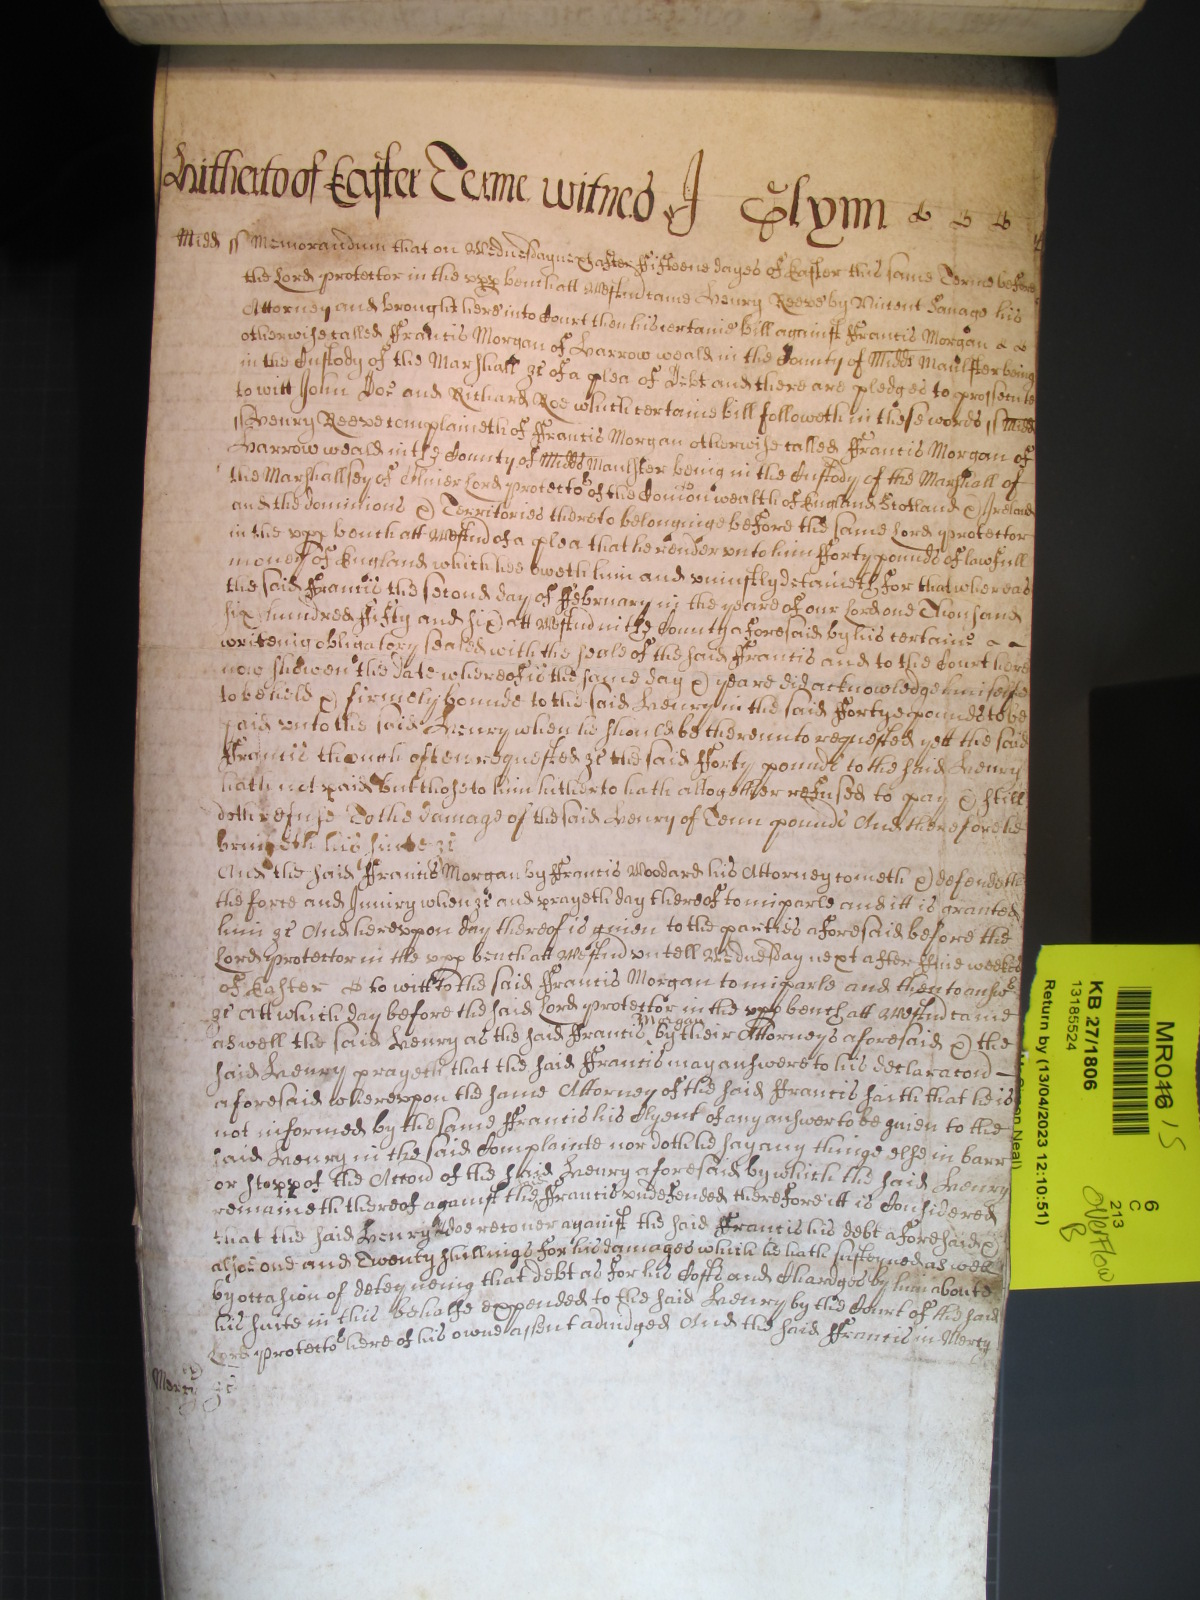 Hitherto of Easter Terme witnes J Glynn
Midd ss Memorandum that on Wednesday next after Fifteene dayes of Easter this same Terme before
the Lord protector in the upp bench att Westm came Henry Reeve by Vincent his
Attorney and brought here into Court then his certaine bill against Francis Morgan
otherwise called Francis Morgan of Harrow weald in the County of Midds Maulster being
in the Custody of the Marshall &c of a plea of Debt and there are pledges to prosecute
to witt John Doe and Richard Roe which certaine bill followeth in these words ss Midd
ss Henry Reeve complaineth of Francis Morgan otherwise called Francis Morgan of
Harrow weald in the County of Midds Maulster being in the Custody of the Marshall of
the Marshallsey of Oliver Lord protector of the Comon wealth of England Scotland & Ireland
and the dominions & Territories thereto belonginge before the same Lord protector
in the upp bench att Westm of a plea that he render unto him Forty pounds of lawfull
money of England which hee oweth him and uniustly detaineth For that whereas
the said Francis the second day of February in the yeare of our Lord one Thousand
six hundred Fifty and six att Westm in the County aforesaid by his certaine
writeing obligatory sealed with the seale of the said Francis and to the Court here
now shewen the date whereof is the same day & yeare did acknowledge himselfe
to be held & firmely bound to the said Henry in the said Forty pounds to be
paid unto the said Henry when he should be thereunto requested yett the said
Francis though often requested &c the said Forty pounds to the said Henry
hath not paid but those to him hitherto hath altogether refused to pay & still
doth refuse To the damage of the said Henry of Tenn pounds And therefore he
bringeth his suite &c
And the said Francis Morgan by Francis Woodard his Attorney cometh & defendeth
the force and Iniury when &c and prayeth day thereof to imparle and itt is granted
him &c And hereupon day thereof is given to the parties aforesaid before the
Lord Protector in the upp bench att Westm untell Wednesday next after Five weekes
of Easter to witt to the said Francis Morgan to imparle and then to answ
&c Att which day before the said Lord protector in the upp bench att Westm came
aswell the said Henry as the said Francis Morgan by their Attorneys aforesaid & the
said Henry prayeth that the said Francis may answere to his declaracon
aforesaid whereupon the same Attorney of the said Francis saith that he is
not informed by the same Francis his Clyent of any answer to be given to the
said Henry in the said Complainte nor doth he say any thinge else in barr
or stopp of the Accon of the said Henry aforesaid by which the said Henry
remaineth thereof against the Francis undefended therefore itt is Considered
that the said Henry doe recover against the said Francis his debt aforesaid &
alsoe one and Twenty shillings for his damages which he hath susteyned as well
by occasion of deteyneing that debt as for his Costs and Chardges by him aboute
his suite in this behalfe expended to the said Henry by the Court of the said
Lord protector here of his owne assent adiudged And the said Francis in Mercy
Mercy &c
MR016
15
KB 27/1806
13185524
Return by (13/04/2023 12:10:51)
6
C
213
overflow
B